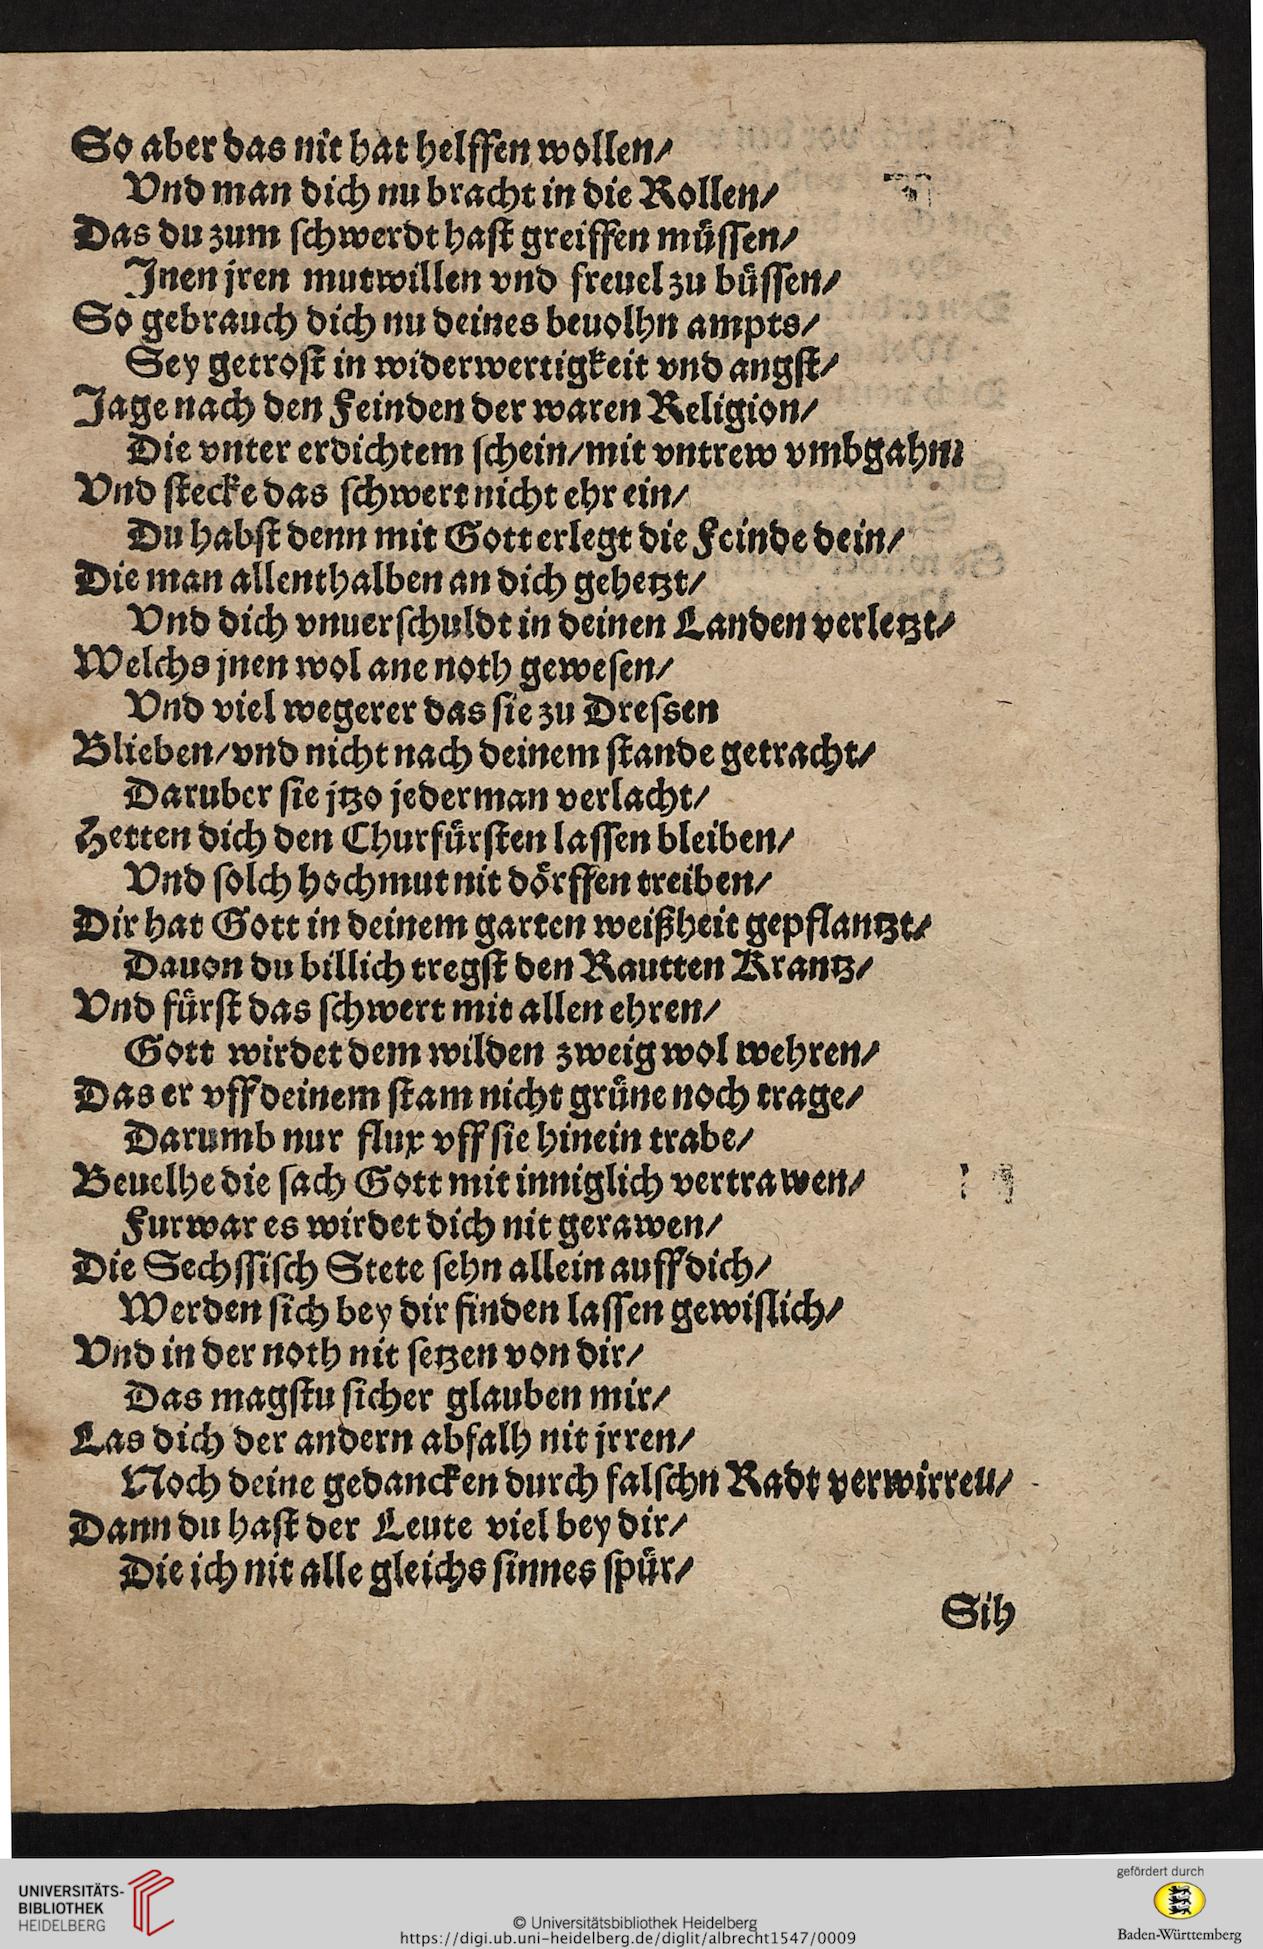 So aber das nit hat helffen wollen/
Vnd man dich nu bracht in die Rollen/
Das du zum schwerdt hast greiffen müssen/
Jnen jren mutwillen vnd freuel zu büssen/
So gebrauch dich nu deines beuolhn ampts/
Sey getrost in widerwertigkeit vnd angst/
Jage nach den Feinden der waren Religion/
Die vnter erdichtem schein/mit vntrew vmbgahn/
Vnd stecke das schwert nicht ehr ein/
Du habst denn mit Gott erlegt die Feinde dein/
Die man allenthalben an dich gehetzt/
Vnd dich vnuerschuldt in deinen Landen verletzt/
Welchs jnen wol ane noth gewesen/
Vnd viel wegerer das sie zu Dressen
Blieben/vnd nicht nach deinem stande getracht/
Daruber sie jtzo jederman verlacht/
Hetten dich den Churfürsten lassen bleiben/
Vnd solch hochmut nit dörffen treiben/
Dir hat Gott in deinem garten weißheit gepflantzt/
Dauon du billich tregst den Rautten Krantz/
Vnd fürst das schwert mit allen ehren/
Gott wirdet dem wilden zweig wol wehren/
Das er vff deinem stam nicht grüne noch trage/
Darumb nur flux vff sie hinein trabe/
Beuelhe die sach Gott mit inniglich vertrawen/
Furwar es wirdet dich nit gerawen/
Die Sechssisch Stete sehn allein auff dich/
Werden sich bey dir finden lassen gewislich/
Vnd in der noth nit setzen von dir/
Das magstu sicher glauben mir/
Las dich der andern abfalh nit jrren/
Noch deine gedancken durch falschn Radt verwirren/
Dann du hast der Leute viel bey dir/
Die ich nit alle gleichs sinnes spür/
Sih
UNIVERSITÄTS-
BIBLIOTHEK
HEIDELBERG
© Universitätsbibliothek Heidelberg
https://digi.ub.uni-heidelberg.de/diglit/albrecht1547/0009
gefördert durch
Baden-Württemberg